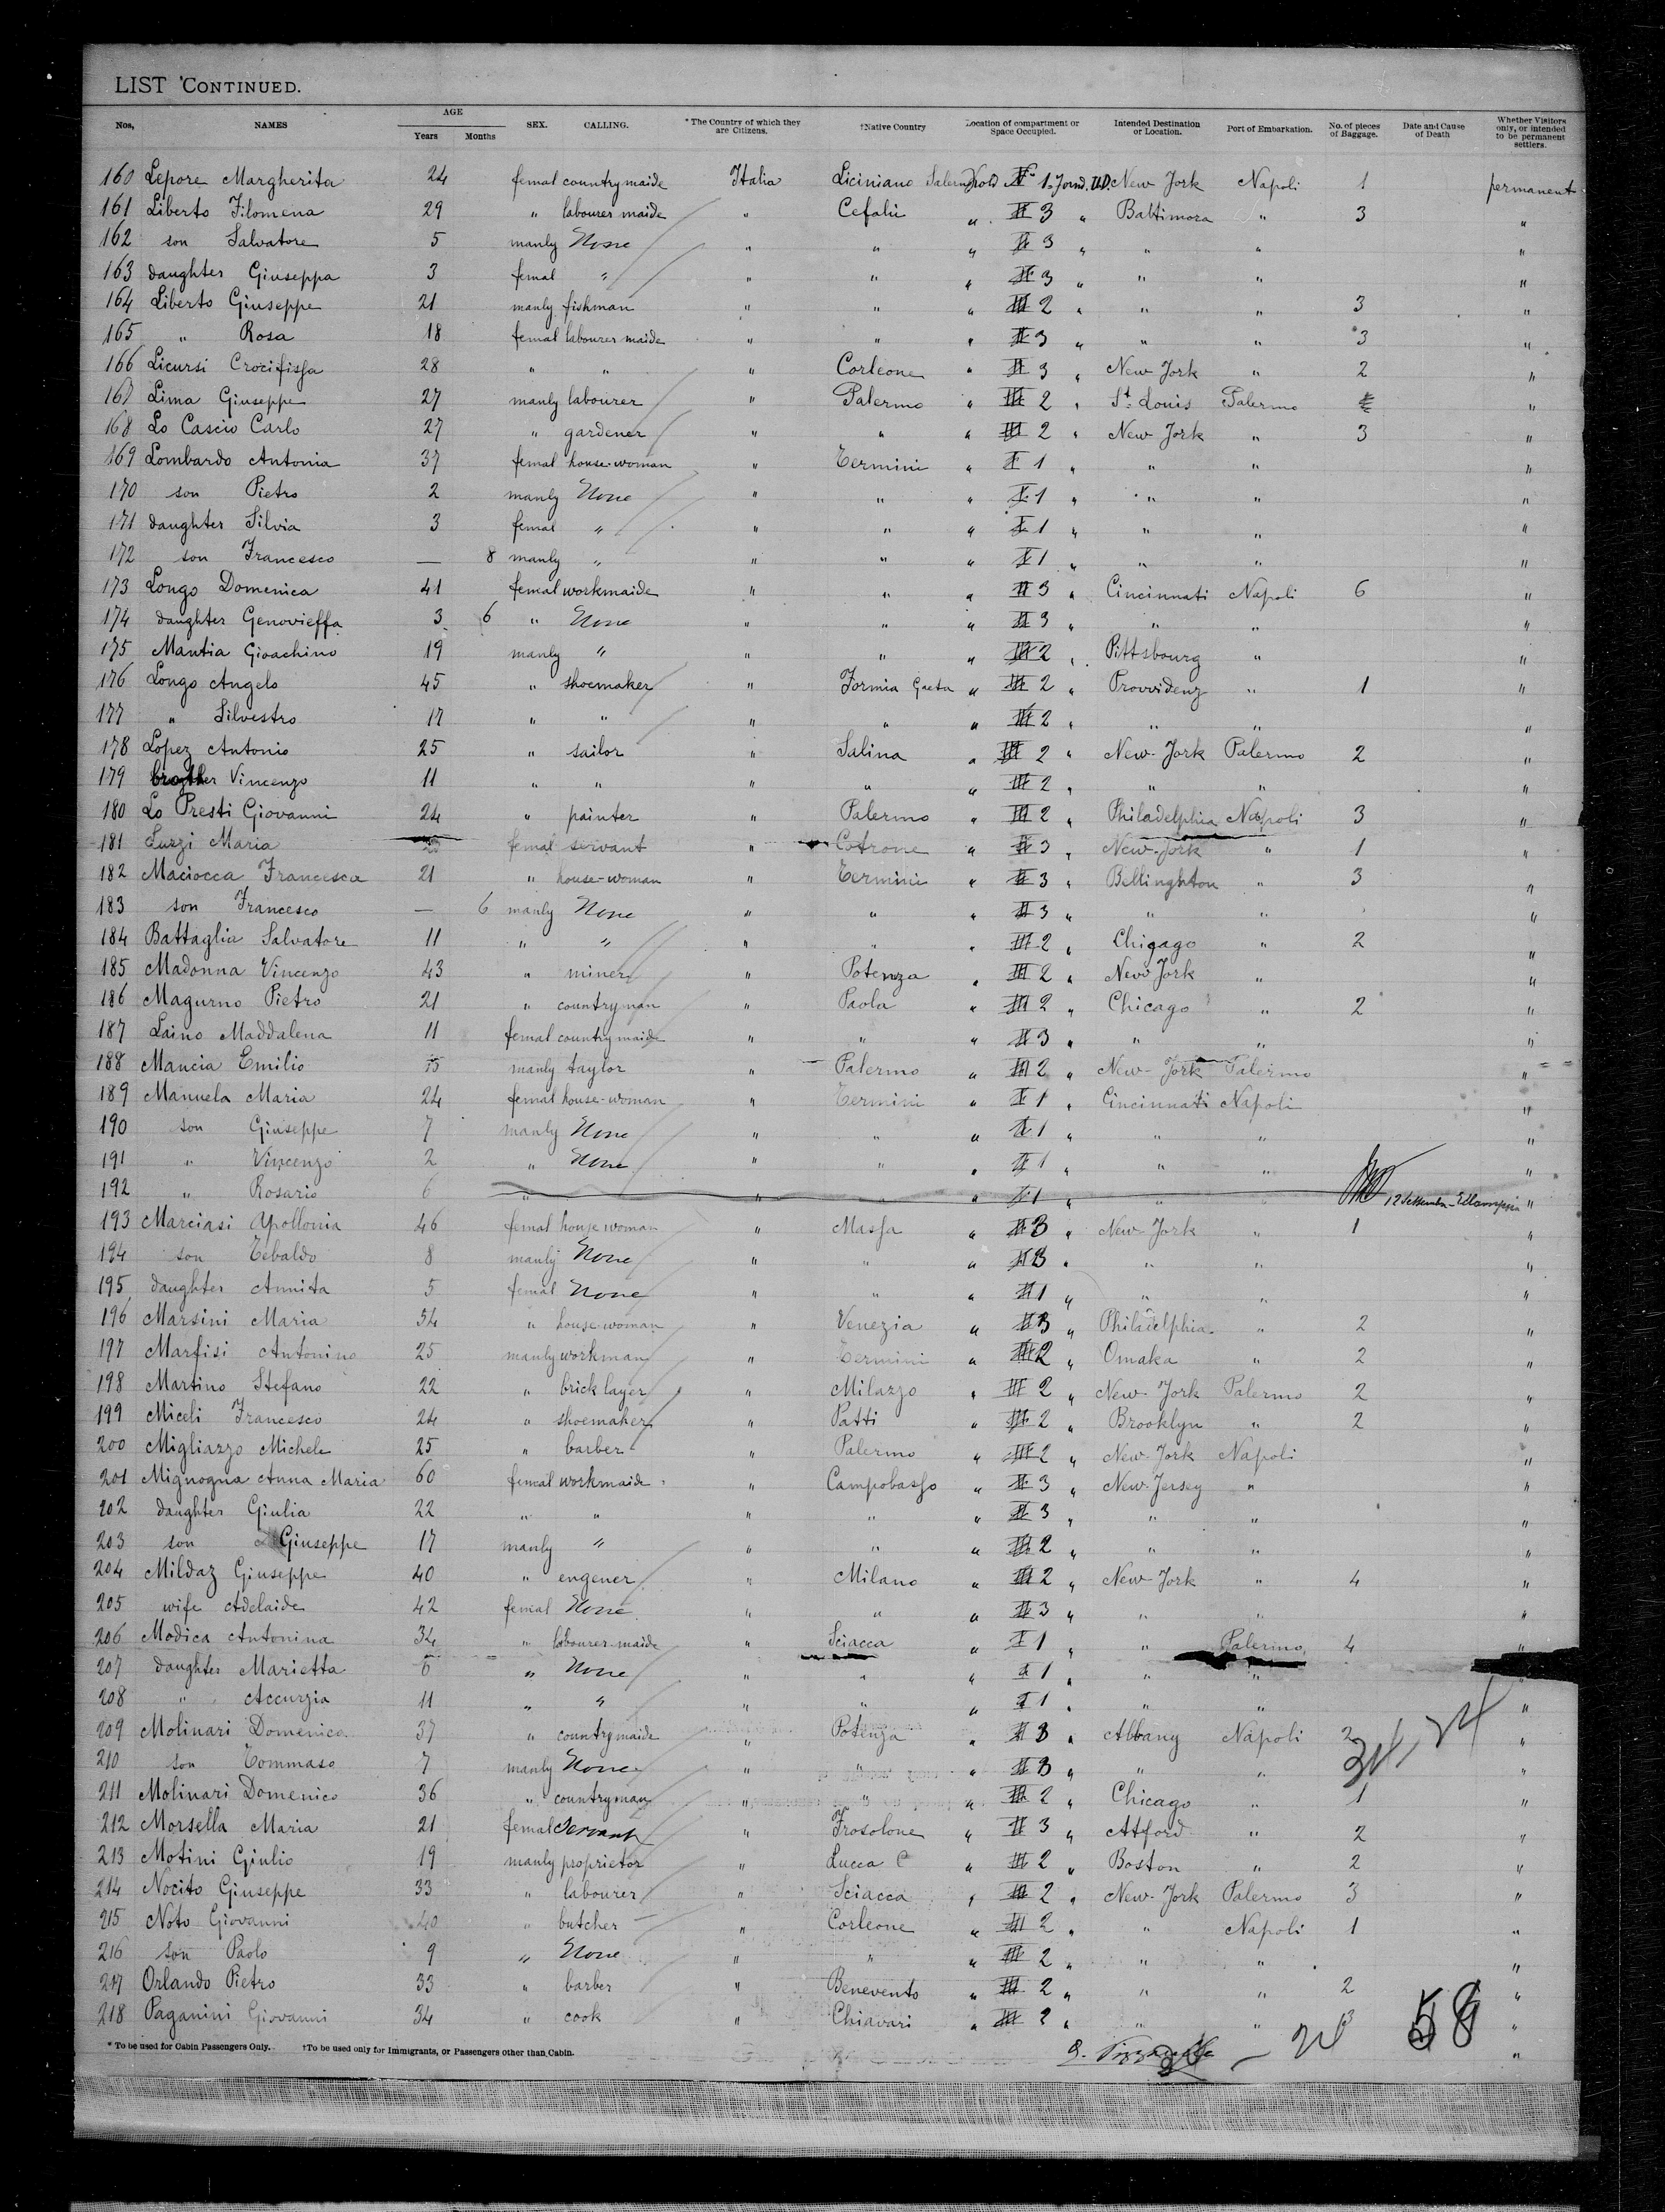 LIST CONTINUED.
Nos. NAMES AGE Years Months SEX. CALLING. * The Country of which they are Citizens. †Native Country Location of compartment or Space Occupied. Intended Destination or Location. Port of Embarkation. No. of pieces of Baggage. Date and Cause of Death Whether Visitors only, or intended to be permanent settlers.
160 Lepore Margherita 24 femal countrymaide Italia Liciniano Salerno 1 New York Napoli 1 permanent
161 Liberto Filomena 29 " labourer maide " Cefalù " II 3 " Baltimora " 3 "
162 son Salvatore 5 manly None " " " II 3 " " " "
163 daughter Giuseppa 3 femal " " " " II 3 " " " "
164 Liberto Giuseppe 21 manly fishman " " " III 2 " " " 3 "
165 " Rosa 18 femal labourer maide " " " II 3 " " " 3 "
166 Licursi Crocifissa 28 " " " Corleone " II 3 " New York " 2 "
167 Lima Giuseppe 27 manly labourer " Palermo " III 2 " St. Louis Palermo "
168 Lo Cascio Carlo 27 " gardener " " " III 2 " New York " 3 "
169 Lombardo Antonia 37 femal house-woman " Termini " I 1 " " " "
170 son Pietro 2 manly None " " " I 1 " " " "
171 daughter Silvia 3 femal " " " " I 1 " " " "
172 son Francesco — 8 manly " " " " I 1 " " " "
173 Longo Domenica 41 femal workmaide " " " II 3 " Cincinnati Napoli 6 "
174 daughter Genovieffa 3 6 " None " " " II 3 " " " "
175 Mantia Gioachino 19 manly " " " " III 2 " Pittsbourg " "
176 Longo Angelo 45 " shoemaker " Formia Gaeta " III 2 " Provvidenz " 1 "
177 " Silvestro 17 " " " " " III 2 " " " "
178 Lopez Antonio 25 " sailor " Salina " III 2 " New York Palermo 2 "
179 brother Vincenzo 11 " " " " " III 2 " " " "
180 Lo Presti Giovanni 24 " painter " Palermo " III 2 " Philadelphia Napoli 3 "
181 Luzzi Maria femal servant " Cotrone " II 3 " New York " 1 "
182 Maciocca Francesca 21 " house-woman " Termini " II 3 " Bellinghton " 3 "
183 son Francesco — 6 manly None " " " II 3 " " " "
184 Battaglia Salvatore 11 " " " " " III 2 " Chigago " 2 "
185 Madonna Vincenzo 43 " miner " Potenza " III 2 " New York " "
186 Magurno Pietro 21 " countryman " Paola " III 2 " Chicago " 2 "
187 Laino Maddalena 11 femal countrymaide " " " II 3 " " " "
188 Mancia Emilio manly taylor " Palermo " III 2 " New York Palermo "
189 Manuela Maria 24 femal house-woman " Termini " I 1 " Cincinnati Napoli "
190 son Giuseppe 7 manly None " " " I 1 " " " "
191 " Vincenzo 2 " None " " " I 1 " " " "
192 " Rosario 6 " " " " I 1 " " " 12 Settembre - Eclampsia "
193 Marciasi Apollonia 46 femal house woman " Massa " II 3 " New York " 1 "
194 son Tebaldo 8 manly None " " " II 3 " " " "
195 daughter Annita 5 femal None " " " II 1 " " " "
196 Marsini Maria 34 " house-woman " Venezia " II 3 " Philadelphia " 2 "
197 Marfisi Antonino 25 manly workman " Termini " III 2 " Omaka " 2 "
198 Martino Stefano 22 " brick layer " Milazzo " III 2 " New York Palermo 2 "
199 Miceli Francesco 24 " shoemaker " Patti " III 2 " Brooklyn " 2 "
200 Migliazzo Michele 25 " barber " Palermo " III 2 " New York Napoli "
201 Mignogna Anna Maria 60 femal workmaide " Campobasso " II 3 " New Jersey " "
202 daughter Giulia 22 " " " " " II 3 " " " "
203 son Giuseppe 17 manly " " " " III 2 " " " "
204 Mildaz Giuseppe 40 " engener " Milano " III 2 " New York " 4 "
205 wife Adelaide 42 femal None " " " II 3 " " " "
206 Modica Antonina 34 " labourer-maide " Sciacca " I 1 " " Palermo 4 "
207 daughter Marietta 6 " None " " " I 1 " " "
208 " Accurzia 11 " " " " " I 1 " " " "
209 Molinari Domenica 37 " countrymaide " Potenza " II 3 " Albany Napoli 2 "
210 son Tommaso 7 manly None " " " II 3 " " " "
211 Molinari Domenico 36 " countryman " " " III 2 " Chicago " 1 "
212 Morsella Maria 21 femal Servant " Frosolone " II 3 " Atford " 2 "
213 Motini Giulio 19 manly proprietor " Lucca " III 2 " Boston " 2 "
214 Nocito Giuseppe 33 " labourer " Sciacca " III 2 " New York Palermo 3 "
215 Noto Giovanni 40 " butcher " Corleone " III 2 " " Napoli 1 "
216 son Paolo 9 " None " " " III 2 " " " "
217 Orlando Pietro 33 " barber " Benevento " III 2 " " " 2 "
218 Paganini Giovanni 34 " cook " Chiavari " III 2 " " " 3 "
58
* To be used for Cabin Passengers Only. †To be used only for Immigrants, or Passengers other than Cabin.